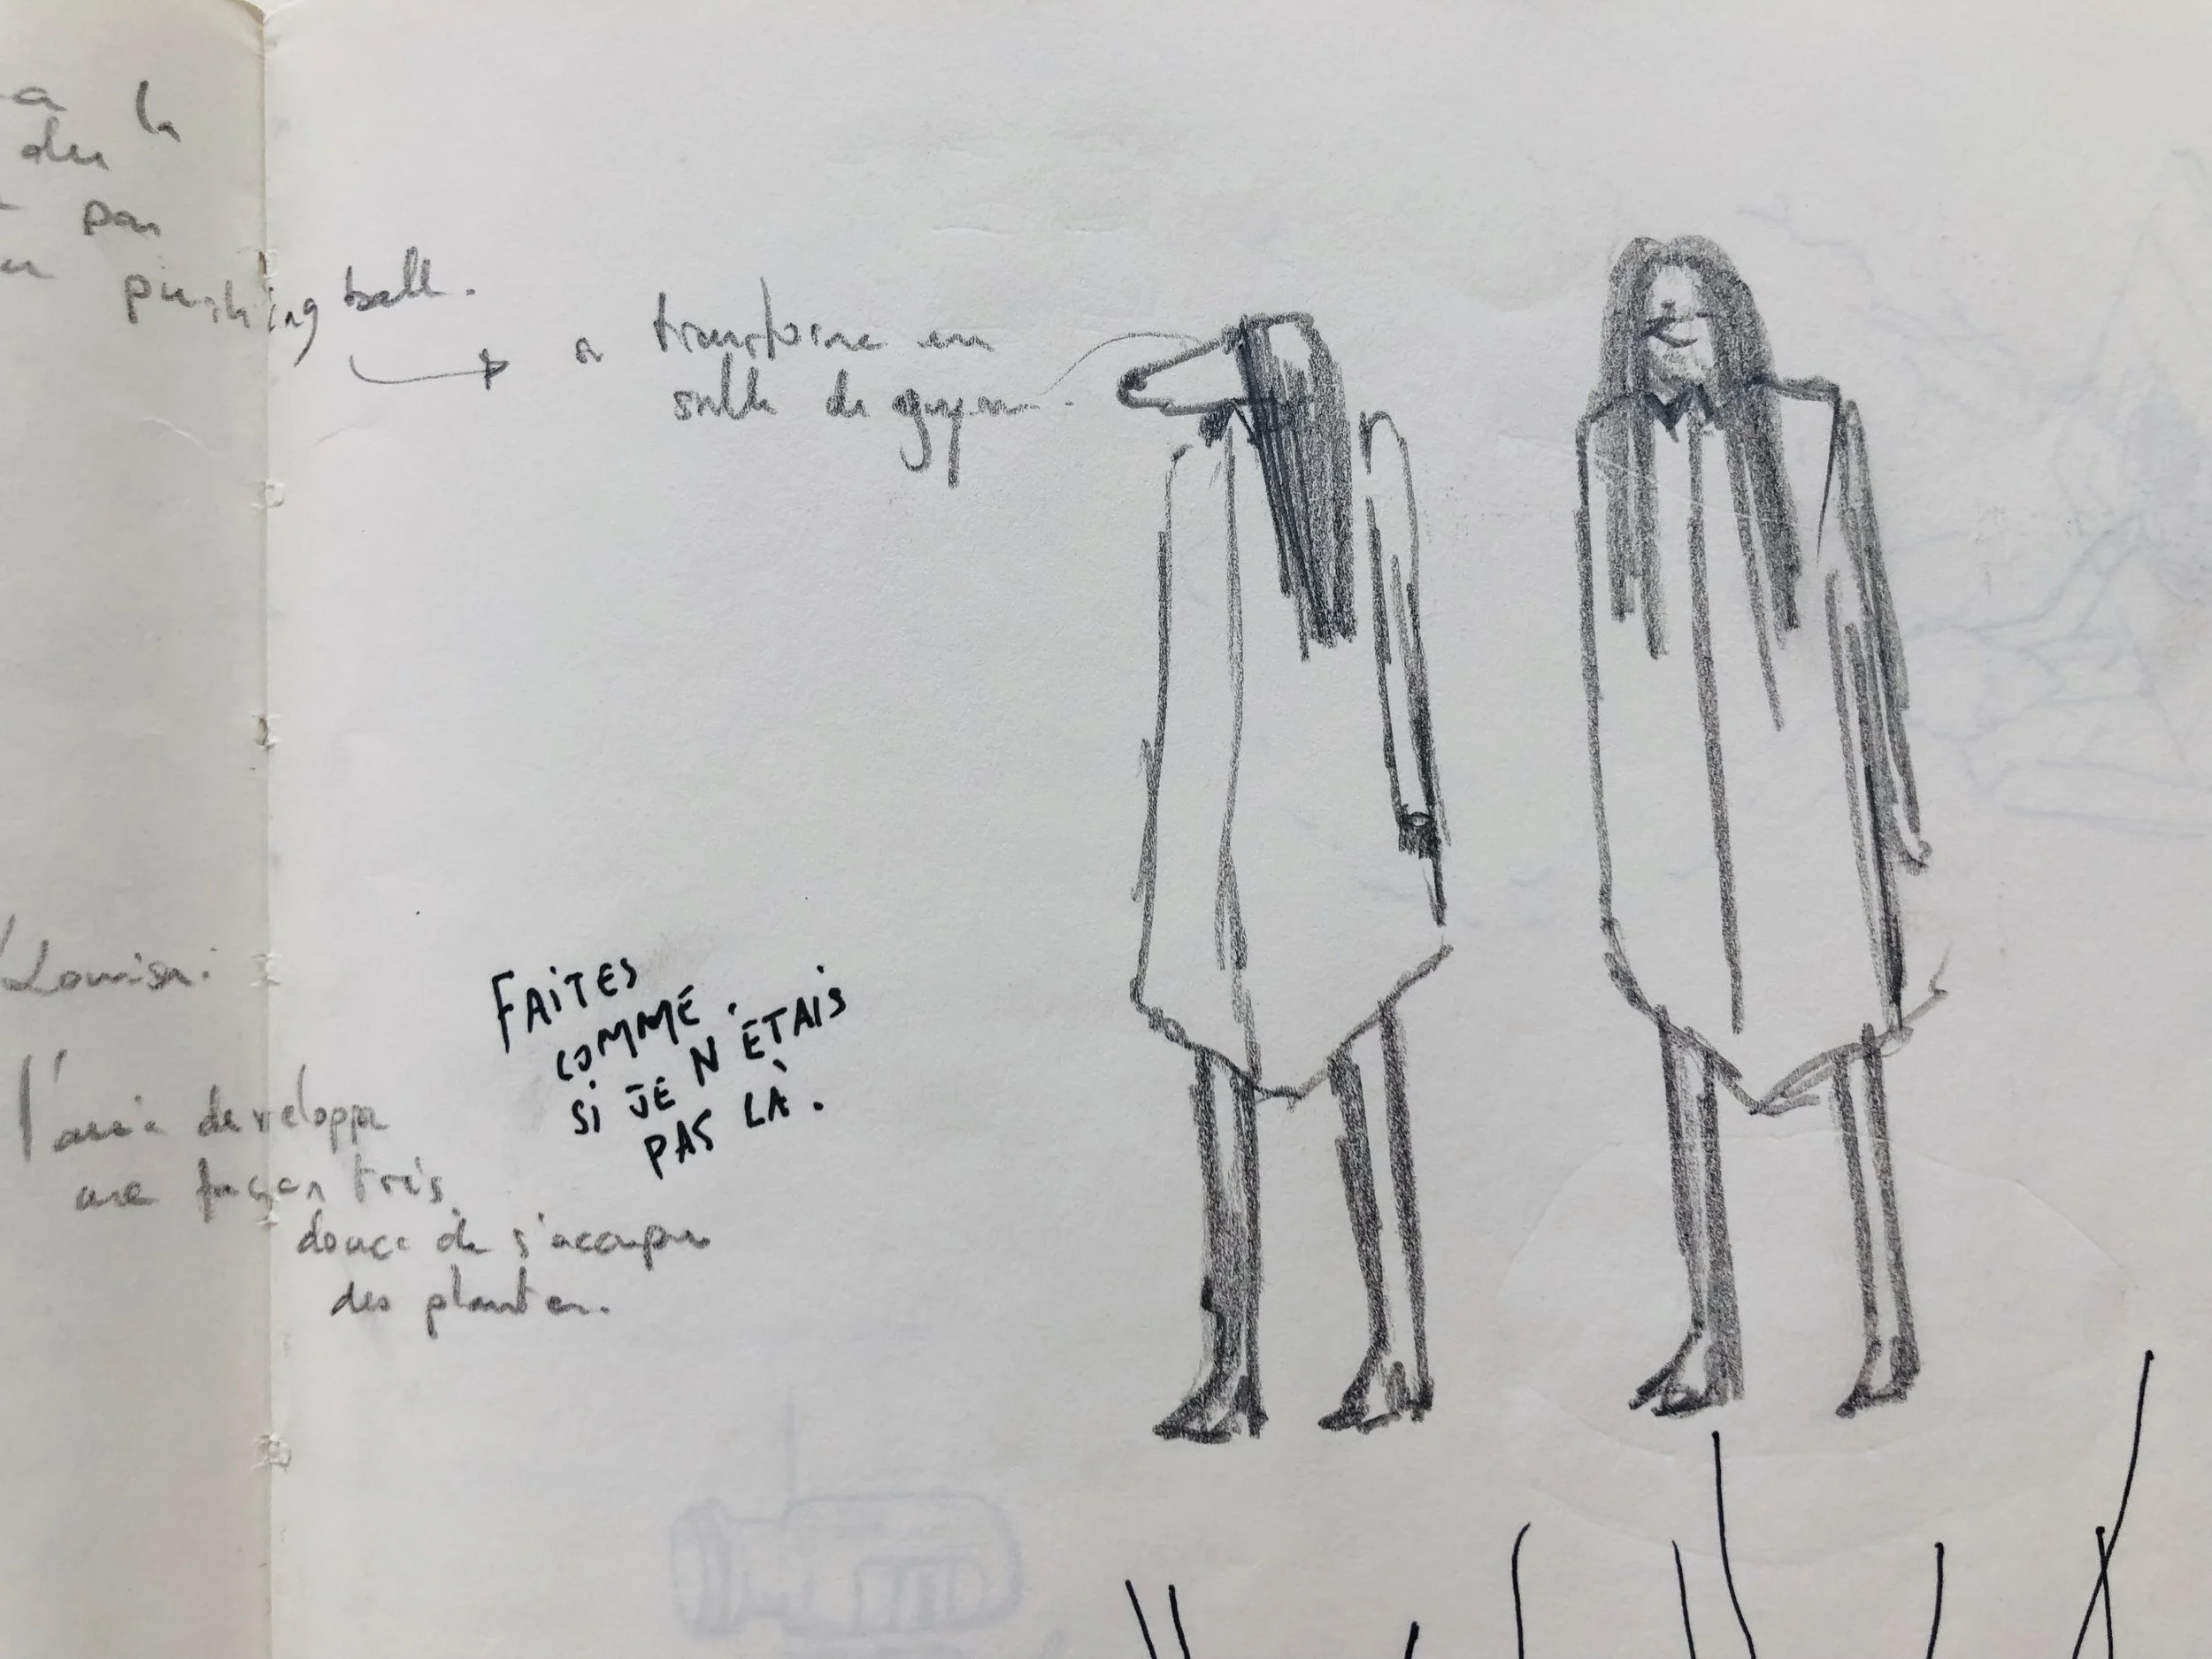 a la
du
par
punching ball.
→ se transforme en
salle de gym.
Louisa:
l'avie developpe
une façon très
douce de s'occuper
des plantes.
FAITES
COMME
SI JE N'ÉTAIS
PAS LÀ.